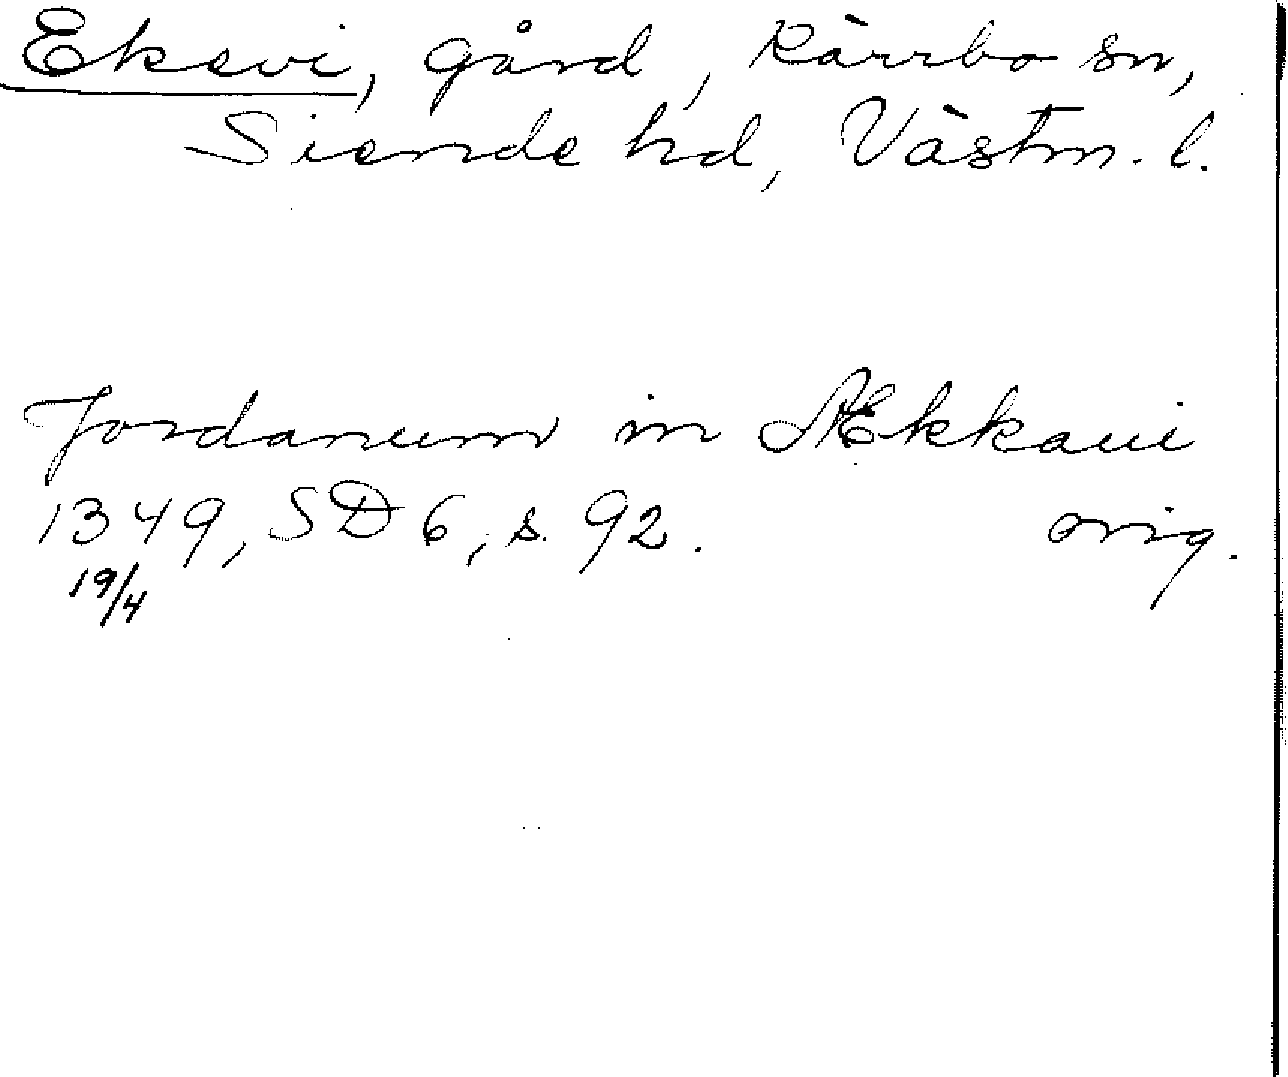 Eksvi, gård, Kärrbo sn,
Siende hd, Västm. l.
Jordanum in Ækkaui
1349, SD 6, s. 92. orig.
19/4